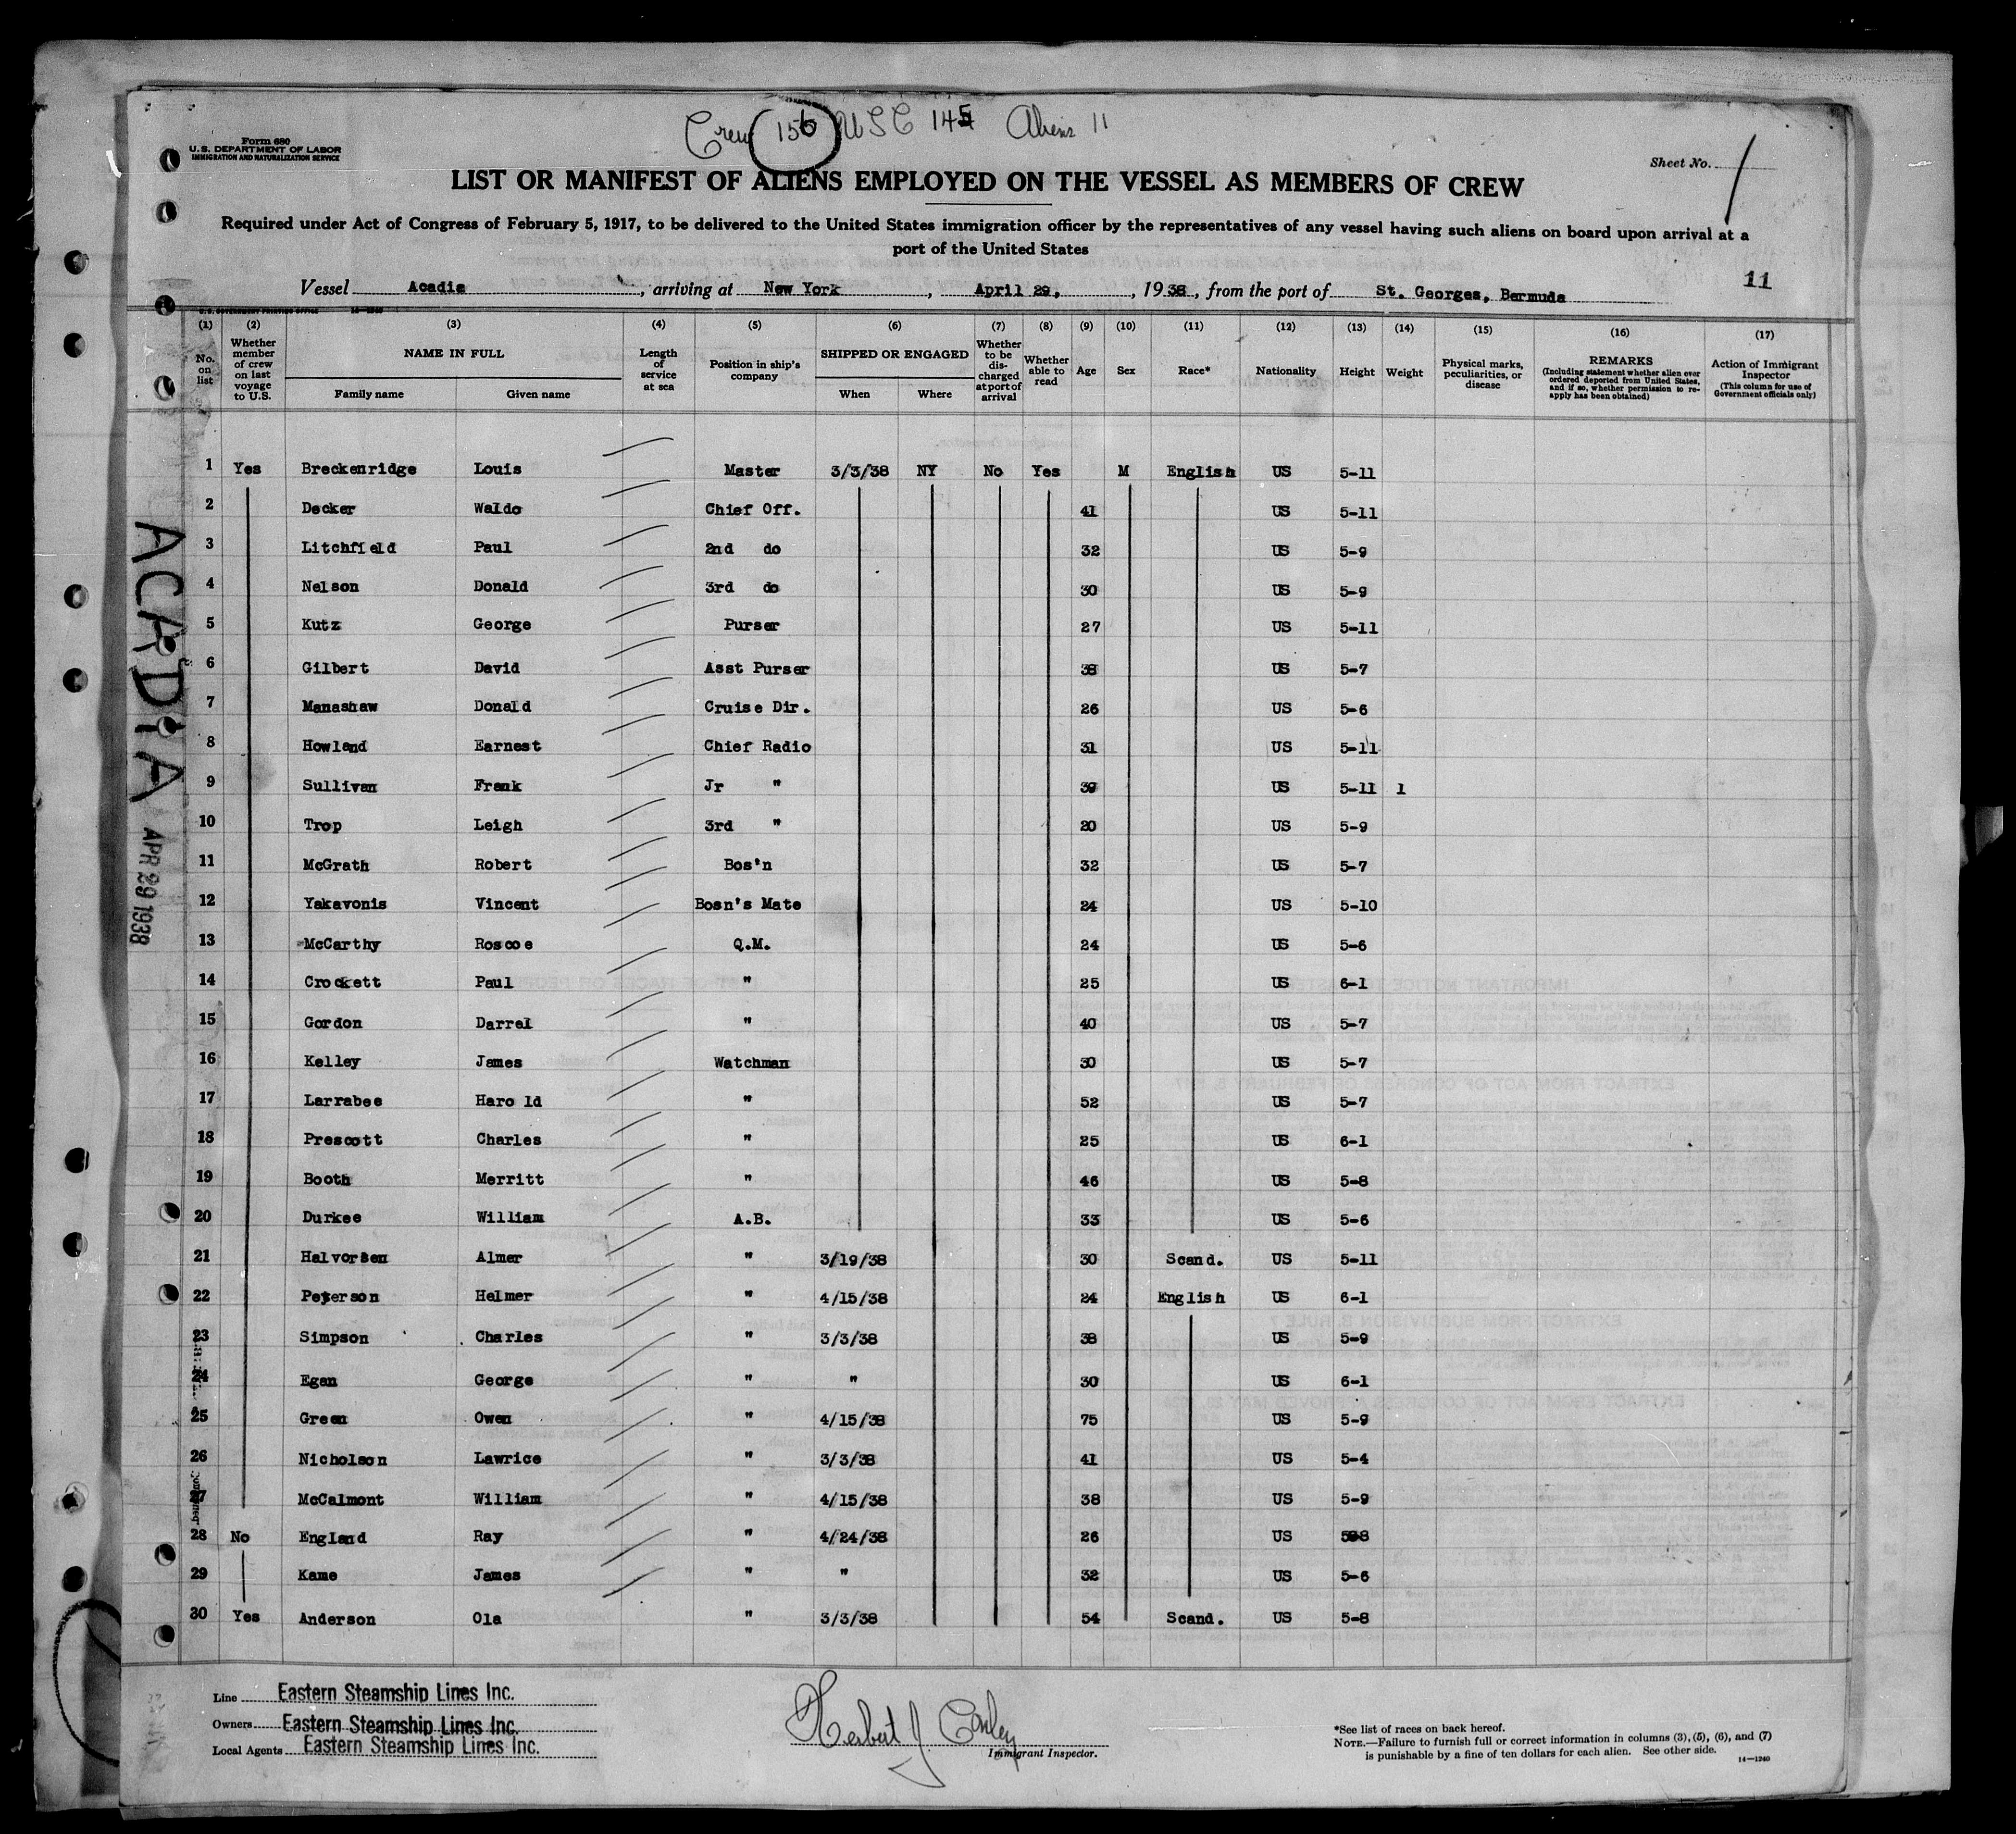 Crew 156 USC 145 Aliens 11
Form 680
U.S. DEPARTMENT OF LABOR
IMMIGRATION AND NATURALIZATION SERVICE
Sheet No. 1
LIST OR MANIFEST OF ALIENS EMPLOYED ON THE VESSEL AS MEMBERS OF CREW
Required under Act of Congress of February 5, 1917, to be delivered to the United States immigration officer by the representatives of any vessel having such aliens on board upon arrival at a
port of the United States
11
Vessel Acadia, arriving at New York, April 29, 1938, from the port of St. Georges, Bermuda
(1) (2) (3) (4) (5) (6) (7) (8) (9) (10) (11) (12) (13) (14) (15) (16) (17)
No. on list
Whether member of crew on last voyage to U.S.
NAME IN FULL
Family name Given name
Length of service at sea
Position in ship's company
SHIPPED OR ENGAGED
When Where
Whether to be discharged at port of arrival
Whether able to read
Age
Sex
Race*
Nationality
Height
Weight
Physical marks, peculiarities, or disease
REMARKS
(Including statement whether alien ever ordered deported from United States, and if so, whether permission to reapply has been obtained)
Action of Immigrant Inspector
(This column for use of Government officials only)
1 Yes Breckenridge Louis Master 3/3/38 NY No Yes M English US 5-11
2 Decker Waldo Chief Off. 41 US 5-11
3 Litchfield Paul 2nd do 32 US 5-9
4 Nelson Donald 3rd do 30 US 5-9
5 Kutz George Purser 27 US 5-11
6 Gilbert David Asst Purser 38 US 5-7
7 Manashaw Donald Cruise Dir. 26 US 5-6
8 Howland Earnest Chief Radio 31 US 5-11
9 Sullivan Frank Jr " 39 US 5-11 1
10 Trop Leigh 3rd " 20 US 5-9
11 McGrath Robert Bos'n 32 US 5-7
12 Yakavonis Vincent Bosn's Mate 24 US 5-10
13 McCarthy Roscoe Q.M. 24 US 5-6
14 Crockett Paul " 25 US 6-1
15 Gordon Darrel " 40 US 5-7
16 Kelley James Watchman 30 US 5-7
17 Larrabee Harold " 52 US 5-7
18 Prescott Charles " 25 US 6-1
19 Booth Merritt " 46 US 5-8
20 Durkee William A.B. 33 US 5-6
21 Halvorsen Almer " 3/19/38 30 Scand. US 5-11
22 Peterson Helmer " 4/15/38 24 English US 6-1
23 Simpson Charles " 3/3/38 38 US 5-9
24 Egan George " " 30 US 6-1
25 Green Owen " 4/15/38 75 US 5-9
26 Nicholson Lawrice " 3/3/38 41 US 5-4
27 McCalmont William " 4/15/38 38 US 5-9
28 No England Ray " 4/24/38 26 US 5-8
29 Kame James " " 32 US 5-6
30 Yes Anderson Ola " 3/3/38 54 Scand. US 5-8
ACADIA APR 29 1938
Line Eastern Steamship Lines Inc.
Owners Eastern Steamship Lines Inc.
Local Agents Eastern Steamship Lines Inc.
Herbert J. Conley
Immigrant Inspector.
*See list of races on back hereof.
NOTE.—Failure to furnish full or correct information in columns (3), (5), (6), and (7)
is punishable by a fine of ten dollars for each alien. See other side.
14—1240